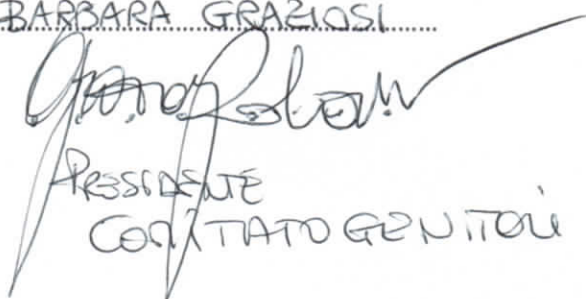 BARBARA GRAZIOSI
PRESIDENTE
COMITATO GENITORI